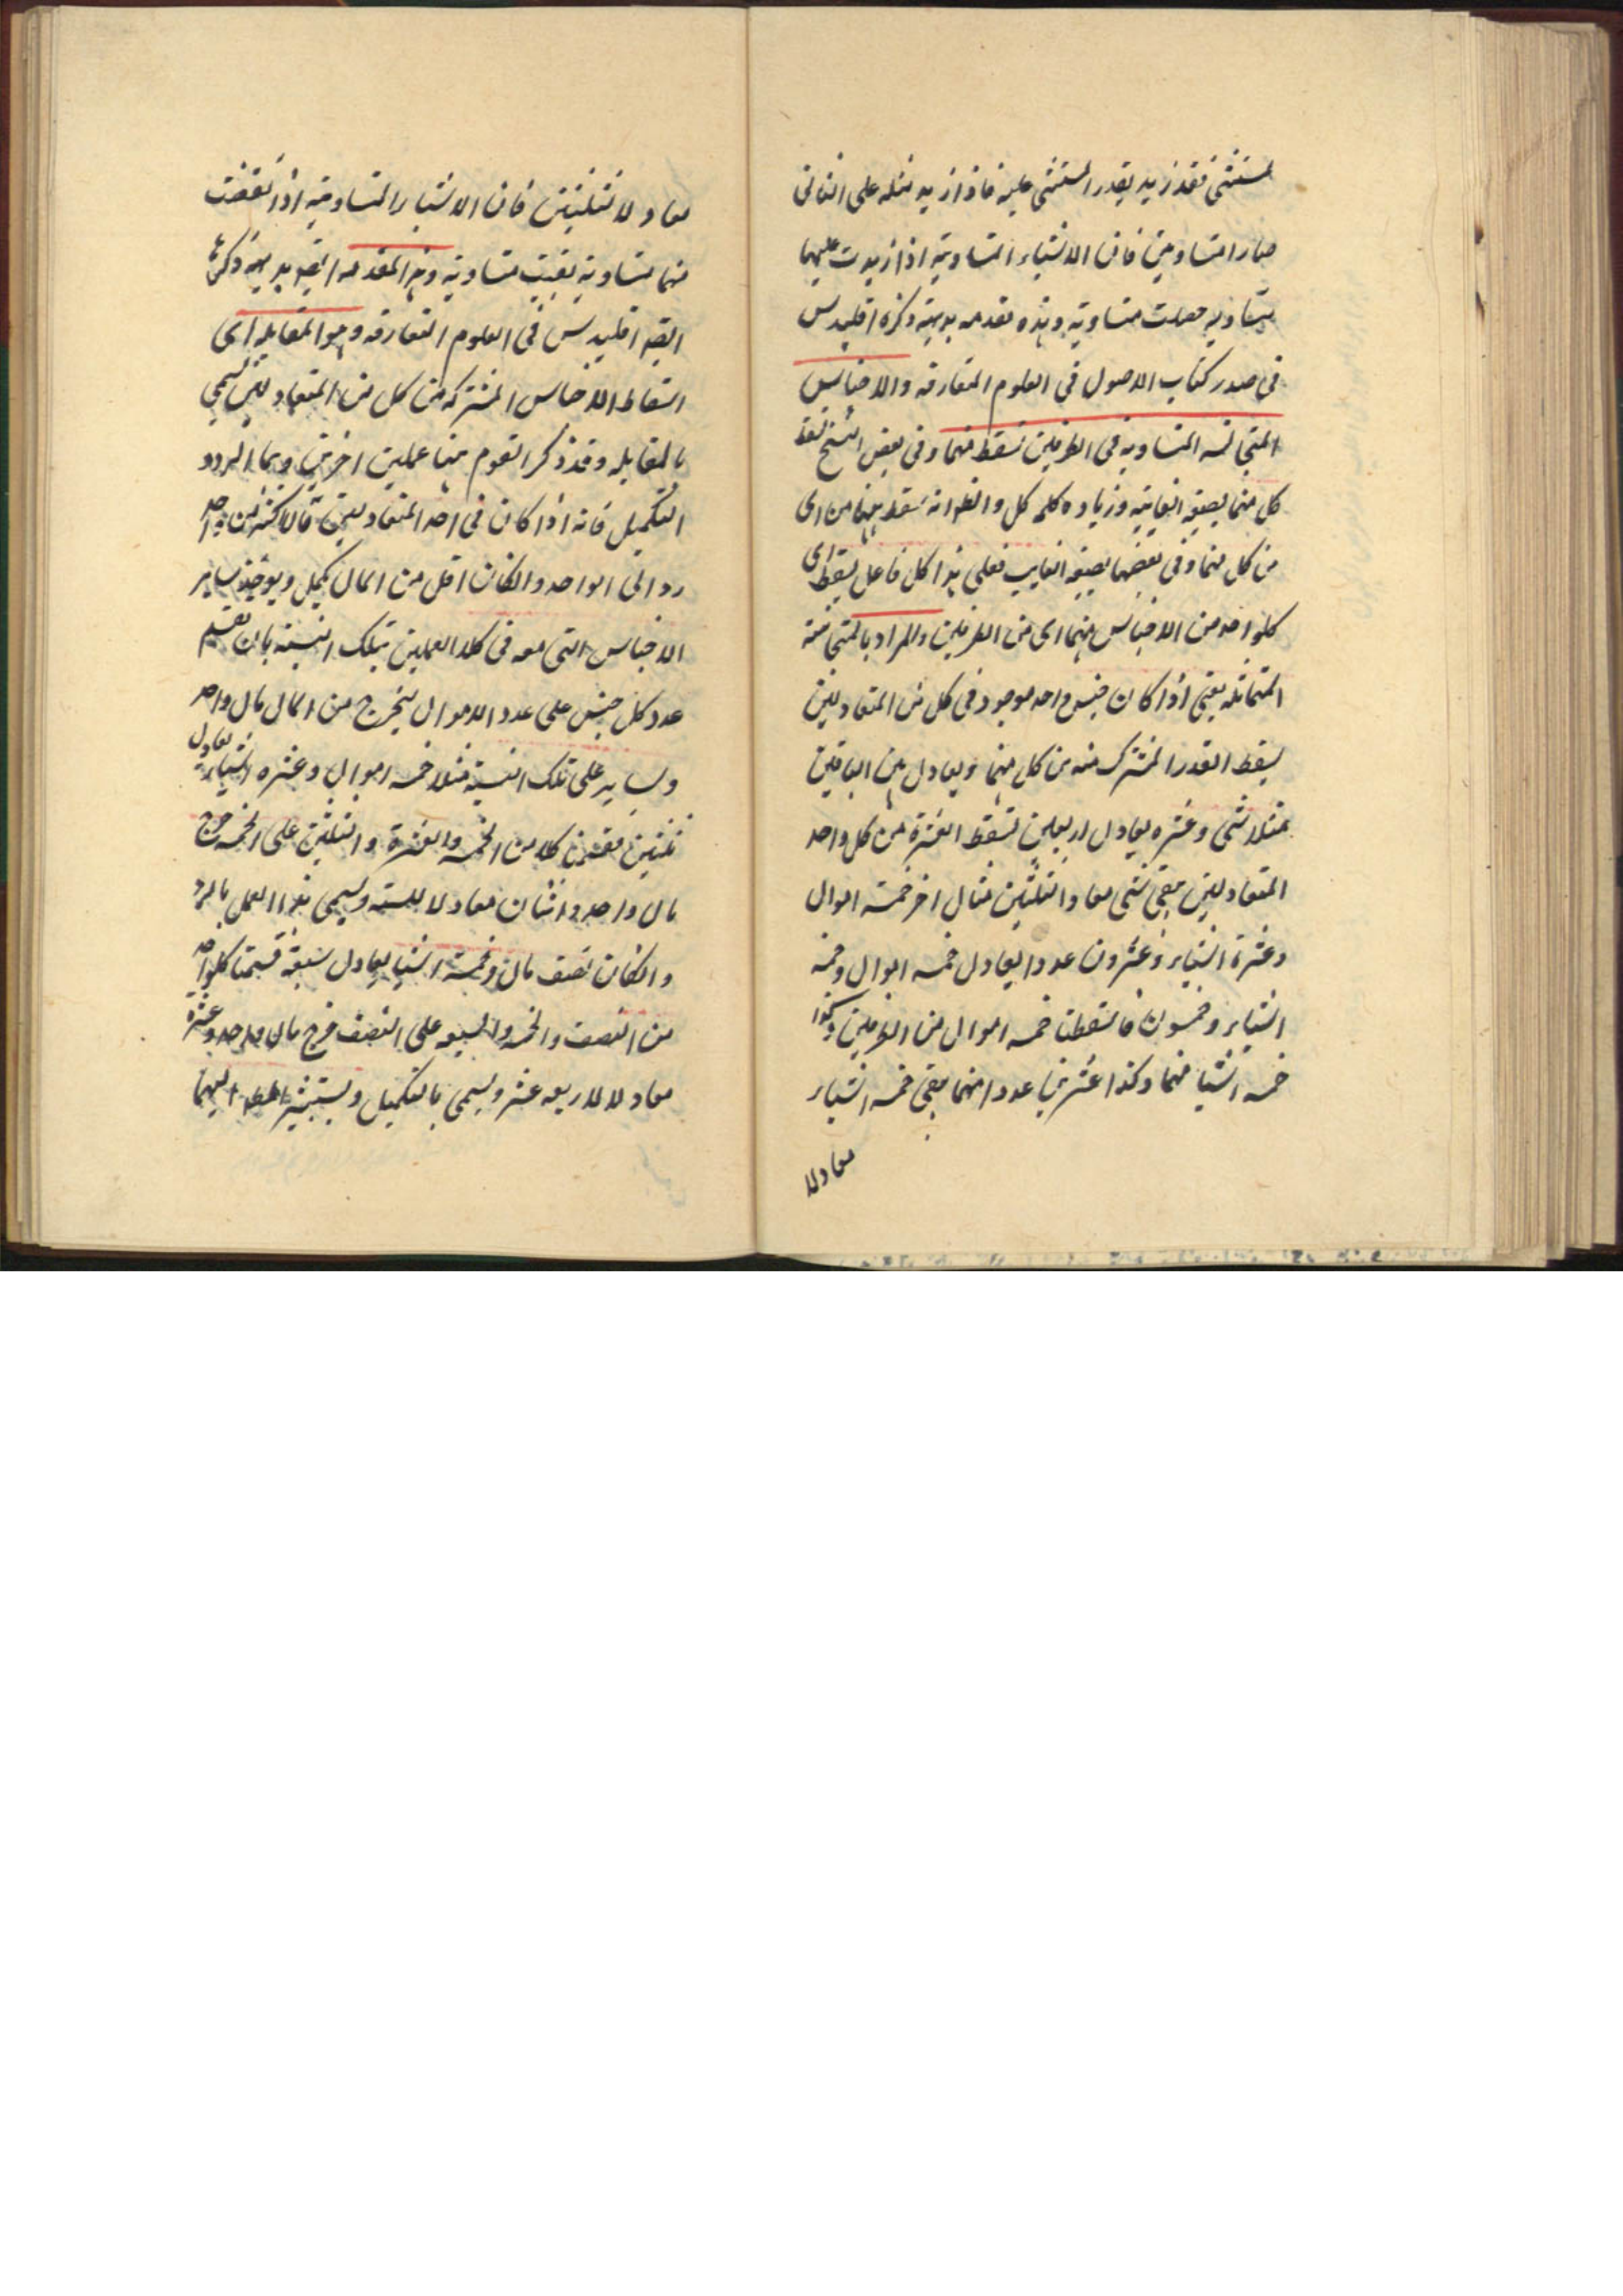 المستثنى فقد زيد بقدر المستثنى عليه فاذا زيد مثله على الثانى
صارا متساويين فان الاشياء المتساوية اذا زيدت عليهما
متساويه حصلت متساوية وهذه مقدمه بديهية ذكره اقليدس
فى صدر كتاب الاصول فى العلوم المتعارفه والاجناس
المتجانسه المتساويه فى الطرفين تسقط منهما وفى بعض النسخ تسقط
كل منهما بصيغه الغايبة وزياده كلمه كل والظ انه منهما اى
من كل منهما وفى بعضها بصيغه الغايب فعلى هذا كل فاعل يسقط اى
كلواحد من الاجناس منهما اى من الطرفين والمراد بالمتجانسة
المتماثله يعنى اذا كان جنس واحد موجود فى كل من المتعادلين
يسقط القدر المشترك منه من كل منهما ويعادل بين الباقيين
مثلا شى وعشره يعادل اربعين تسقط العشرة من كل واحد
المتعادلين يبقى شى معادلا ثلثين مثال اخر خمسة اموال
وعشرة اشياء وعشرون عددا يعادل خمسه اموال وخمسه
اشياء وخمسون فاسقطنا خمسه اموال من الطرفين وكذا
خمسه اشيا منهما وكذا عشرين عددا منهما يبقى خمسه اشياء
معادلا
معادلا لثلثين فان الاشياء المتساوية اذا نقصت
منها متساويه بقيت متساوية وهذه المقدمه ايضا بديهية ذكرها
ايضا اقليدس فى العلوم المتعارفه وهو المقابله اى
اسقاط الاجناس المشتركه من كل من المتعادلين يسمى
بالمقابله وقد ذكر القوم هنا عملين اخرين وهما الرد و
التكميل فانه اذا كان فى احد المتعادلين مال اكثر من واحد
رد الى الواحد وان كان اقل من المال يكمل ويوخذ ساير
الاجناس التى معه فى كلا العملين بتلك النسبة بان تقسم
عدد كل جنس على عدد الاموال ليخرج من المال مال واحد
وساير على تلك النسبة مثلا خمسه اموال وعشره اشياء يعادل
ثلثين فقسمنا كلا من الخمسه والعشرة والثلثين على الخمسه خرج
مال واحد واثنان معادلا للسته ويسمى هذا العمل بالرد
وان كان نصف مال وخمسة اشيا يعادل سبعة قسمنا كلواحد
من النصف والخمسه والسبعه على النصف خرج مال واحد وعشرة
معادلا لاربعه عشر ويسمى بالتكميل اليهما